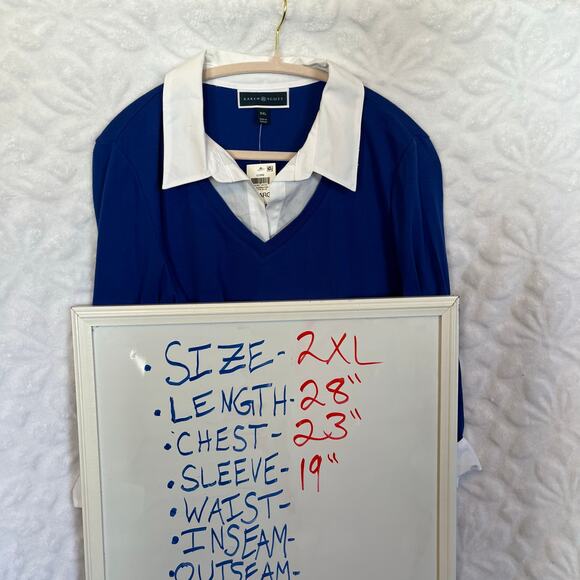 KAREN SCOTT
XXL
• SIZE- 2XL
• LENGTH- 28"
• CHEST- 23"
• SLEEVE- 19"
• WAIST-
• INSEAM-
• OUTSEAM-